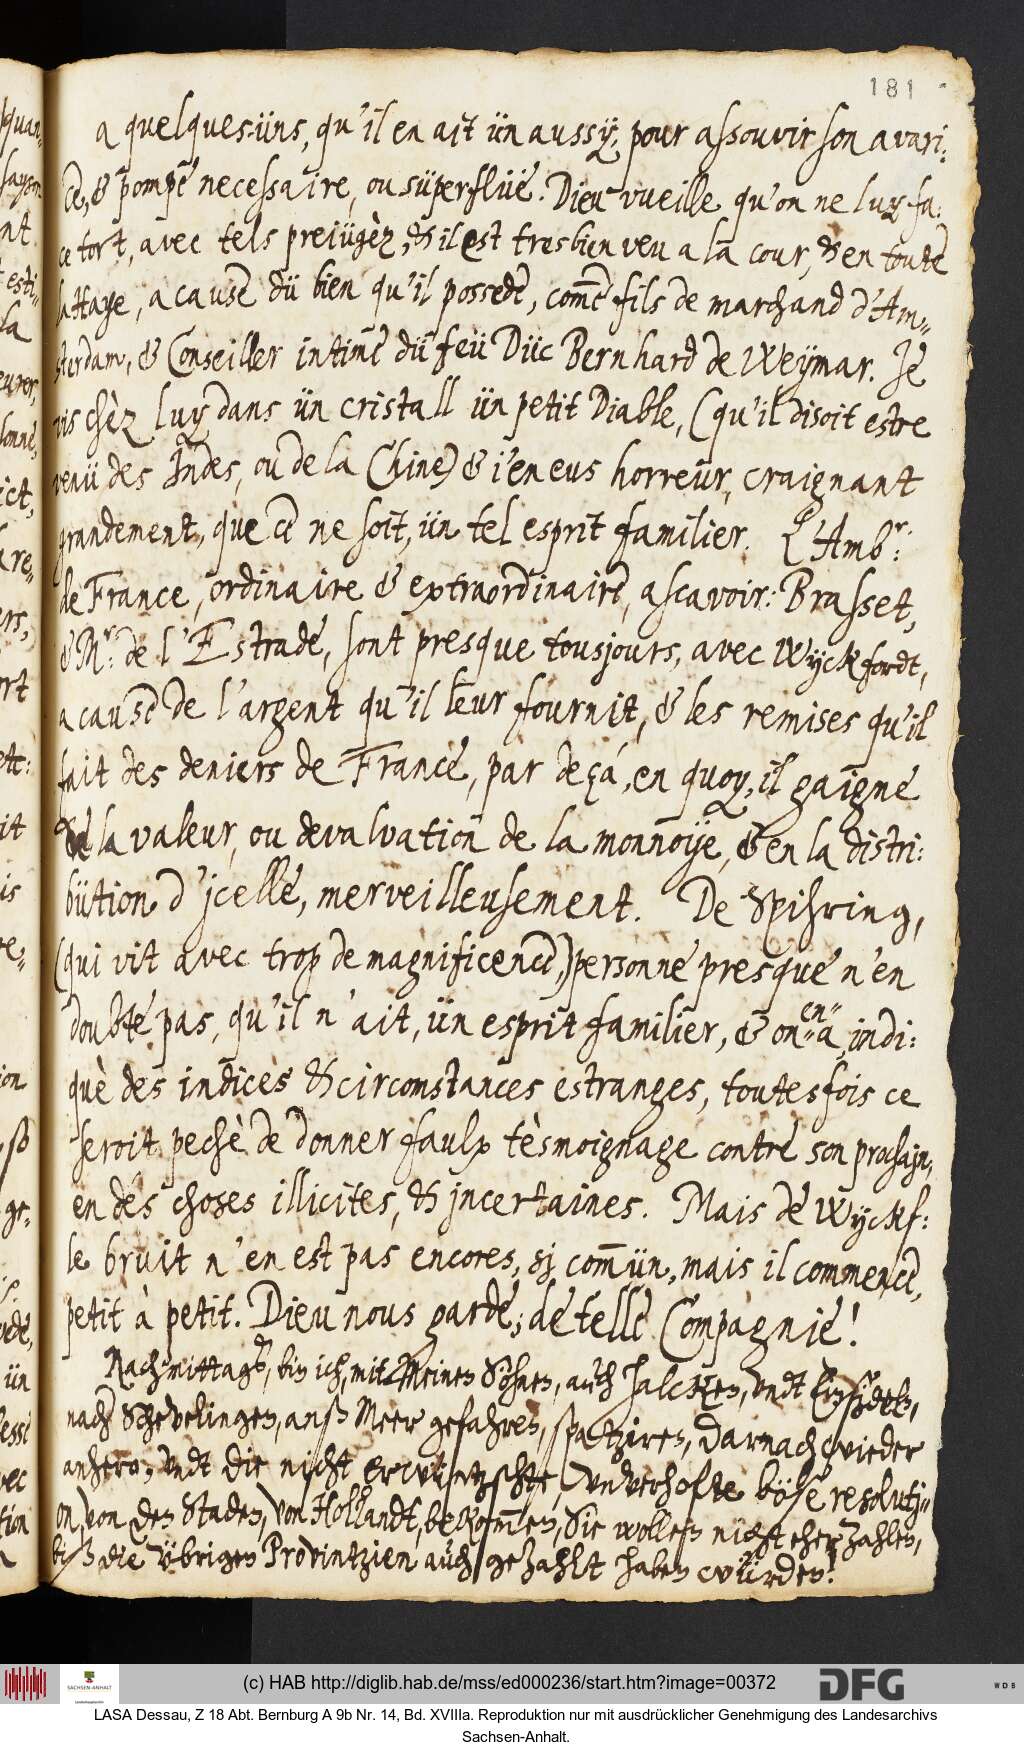 181
a quelques-üns, qu'il en ait ün aussÿ, pour assouvir son avari:
ce, & pompe necessaire, ou süperflüe. Dieu vueille qu'on ne luy fa:
ce tort, avec tels preiügèz, & il est tresbien veu a la cour, & en toute
la Haye, a cause dü bien qu'il possede, com̄e fils de marchand d'Am=
sterdam, & Conseiller intim̄e dü feü Düc Bernhard de Weÿmar. Je
vis chèz luy dans ün cristall ün petit Diable, (qu'il disoit estre
venü des Indes, ou de la Chine) & i'en eus horreur, craignant
grandement, que ce ne soit, ün tel esprit familier. L'Amb.r:
de France, ordinaire & extraordinaire, ascavoir: Brasset,
& Mr: de l'Estrade, sont presque tousjours, avec Wÿckfordt,
a cause de l'argent qu'il leur fournit, & les remises qu'il
fait des deniers de France, par deçá, en quoy, il gaigne
de la valeur, ou devalvation de la monnoÿe, & en la distri:
bütion d'jcelle, merveilleusement. De Spihring,
(qui vit avec trop de magnificence,) personne presque n'en
doubte pas, qu'il n'ait, ün esprit familier, & on en a, indi:
què des indices & circomstances estranges, toutesfois ce
seroit pechè de donner faulx tèsmoignage contre son prochajn,
en des choses illicites, & jncertaines. Mais de Wÿckf:
le bruit n'en est pas encores, sj com̄ün, mais il commence,
petit à petit. Dieu nous garde, de telle Compagnie!
Nachmittags, bin ich, mit Meinen Söhnen, auch Jalckzen, undt Ernsidtels,
nach Schevelingen, anß Meer gefahren, spatziren, darnach wieder
anhero, undt die nicht erwüntzschte, unverhofte böse resolutj=
on, von den Staden, von Hollandt, bekom̄en, Sie wollen nicht eher zahlen,
biß die übrigen Provintzien auch gezahlt haben würden!
quan-
ict,
rt
it
is
ion
ün
tion
SACHSEN-ANHALT
(c) HAB http://diglib.hab.de/mss/ed000236/start.htm?image=00372
DFG
WDB
LASA Dessau, Z 18 Abt. Bernburg A 9b Nr. 14, Bd. XVIIIa. Reproduktion nur mit ausdrücklicher Genehmigung des Landesarchivs
Sachsen-Anhalt.